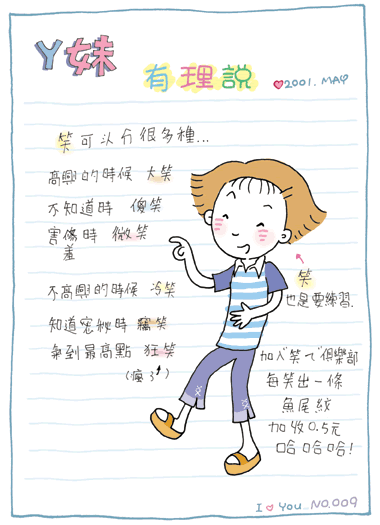 ㄚ妹
有理說
2001. MAY
笑可以分很多種...
高興的時候 大笑
不知道時 傻笑
害傷時 微笑
羞
不高興的時候 冷笑
知道密祕時 竊笑
爭到最高點 狂笑
(瘋了)
笑
也是要練習.
加入"笑ㄟ"俱樂部
每笑出一條
魚尾紋
加收0.5元
哈哈哈!
I ♥ You...NO.009